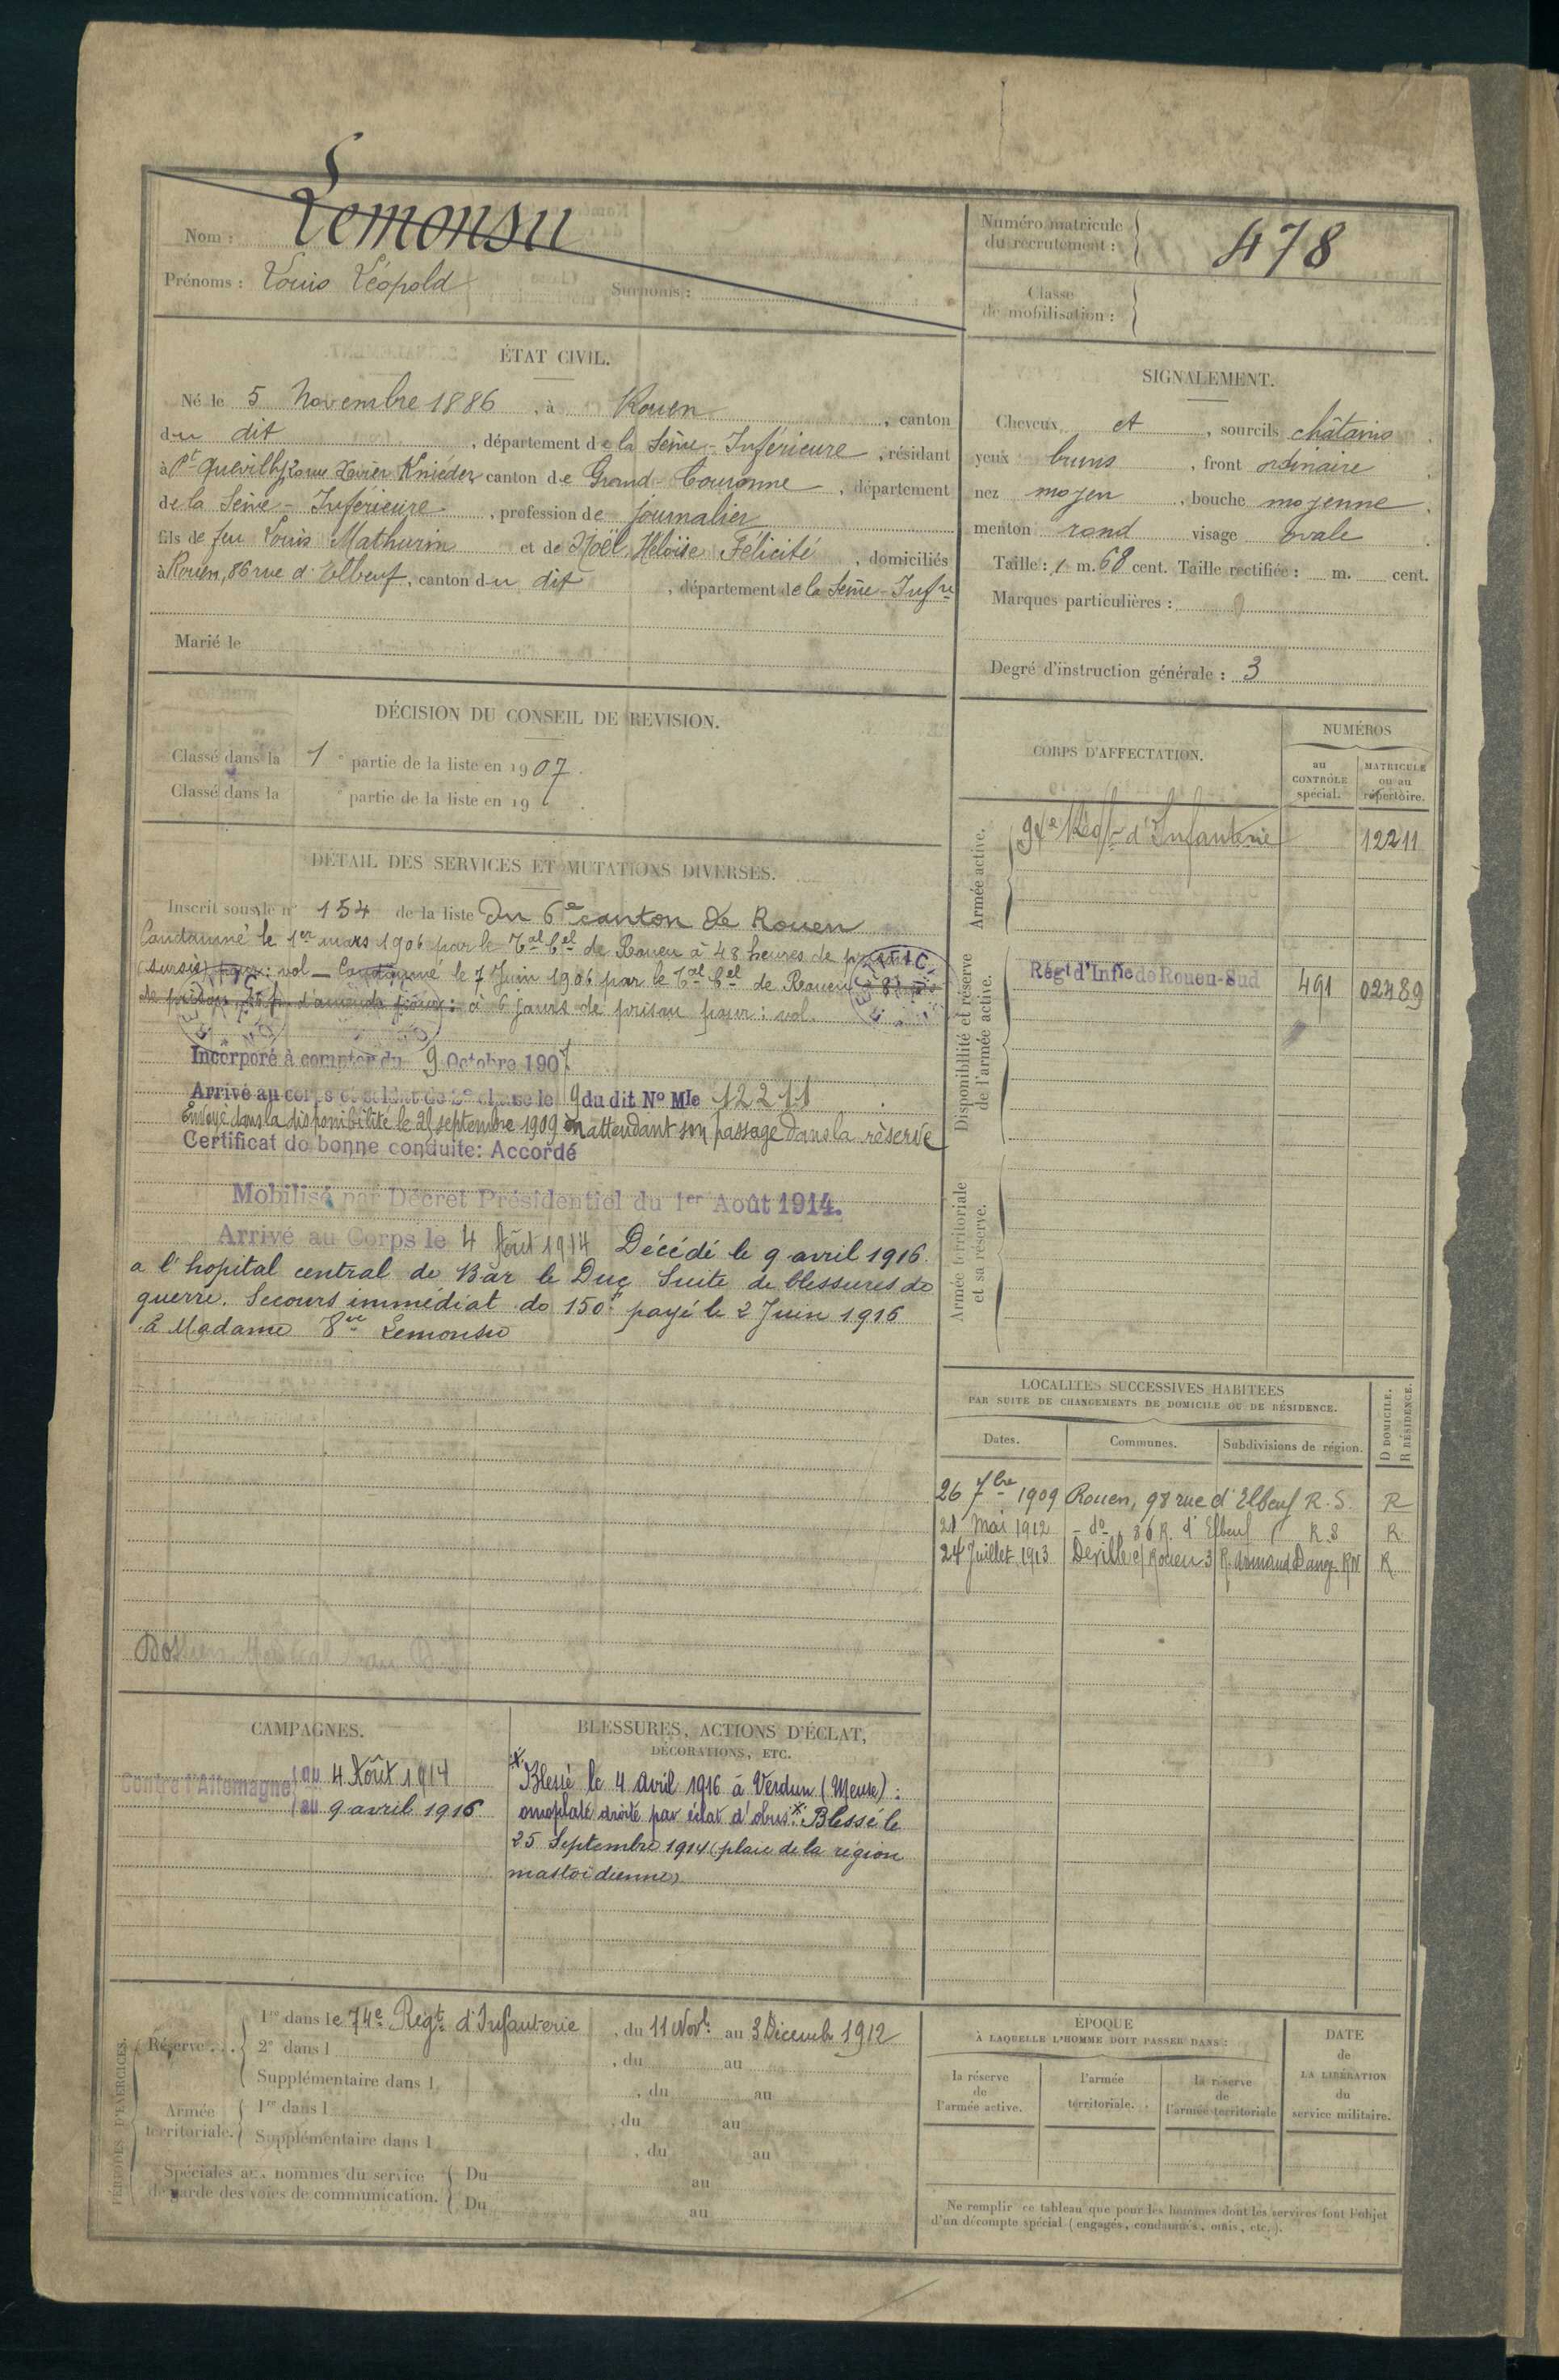 Nom : Lemonsu
Prénoms : Louis Léopold Surnoms :
Numéro matricule du recrutement : 478
Classe de mobilisation :
ÉTAT CIVIL.
Né le 5 Novembre 1886, à Rouen, canton
du dit, département de la Seine-Inférieure, résidant
à Pt Quevilly, rue Xavier Knieder canton de Grand-Couronne, département
de la Seine-Inférieure, profession de journalier
fils de feu Louis Mathurin et de Noël, Héloïse Félicité, domiciliés
à Rouen, 86 rue d'Elbeuf, canton du dit, département de la Seine-Infre
Marié le
SIGNALEMENT.
Cheveux et, sourcils châtains
yeux bruns, front ordinaire
nez moyen, bouche moyenne
menton rond visage ovale
Taille : 1 m. 68 cent. Taille rectifiée : m. cent.
Marques particulières :
Degré d'instruction générale : 3
DÉCISION DU CONSEIL DE REVISION.
Classé dans la 1e partie de la liste en 1907.
Classé dans la e partie de la liste en 19 .
DÉTAIL DES SERVICES ET MUTATIONS DIVERSES.
Inscrit sous le n° 154 de la liste du 6e canton de Rouen
Condamné le 1er mars 1906 par le Tal Cel de Rouen à 48 heures de
(sursis) pour : vol — Condamné le 7 Juin 1906 par le Tal Cel de Rouen
de prison, 25 f. d'amende pour : à 6 jours de prison pour : vol.
Incorporé à compter du 9 Octobre 1907
Arrivé au corps et soldat de 2e classe le 9 du dit No Mle 12211
Envoyé dans la disponibilité le 25 septembre 1909 en attendant son passage dans la réserve
Certificat de bonne conduite: Accordé
Mobilisé par Décret Présidentiel du 1er Août 1914.
Arrivé au Corps le 4 Août 1914 Décédé le 9 avril 1916
a l'hopital central de Bar le Duc Suite de blessures de
guerre. Secours immédiat de 150 f payé le 2 Juin 1916
à Madame Vve Lemonsu
CORPS D'AFFECTATION.
NUMÉROS
au CONTRÔLE spécial.
MATRICULE ou au répertoire.
Armée active.
Régt d'Infanterie 12211
Disponibilité et réserve de l'armée active.
Régt d'Infie de Rouen-Sud 491 02489
Armée territoriale et sa réserve.
LOCALITÉS SUCCESSIVES HABITÉES
PAR SUITE DE CHANGEMENTS DE DOMICILE OU DE RÉSIDENCE.
Dates. Communes. Subdivisions de région. D DOMICILE. R RÉSIDENCE.
26 7bre 1909 Rouen, 98 rue d'Elbeuf R.S. R
21 Mai 1912 - do - 86 R. d'Elbeuf R.S R
24 Juillet 1913 Deville c/ Rouen 3 R. Armand RN R
Dossier Médical au
CAMPAGNES.
Contre l'Allemagne du 4 Août 1914
au 9 avril 1916
BLESSURES, ACTIONS D'ÉCLAT,
DÉCORATIONS, ETC.
Blessé le 4 Avril 1916 à Verdun (Meuse) :
omoplate droite par éclat d'obus. Blessé le
25 Septembre 1914 (plaie de la région
mastoïdienne)
PÉRIODES D'EXERCICES.
Réserve . . .
1re dans le 74e Régt d'Infanterie, du 11 Nov. au 3 Décemb 1912
2e dans l , du au
Supplémentaire dans l , du au
Armée territoriale.
1re dans l , du au
Supplémentaire dans l , du au
Spéciales aux hommes du service de garde des voies de communication.
Du au
Du au
ÉPOQUE
À LAQUELLE L'HOMME DOIT PASSER DANS :
la réserve de l'armée active.
l'armée territoriale.
la réserve de l'armée territoriale
DATE de LA LIBÉRATION du service militaire.
Ne remplir ce tableau que pour les hommes dont les services font l'objet
d'un décompte spécial (engagés, condamnés, omis, etc.).